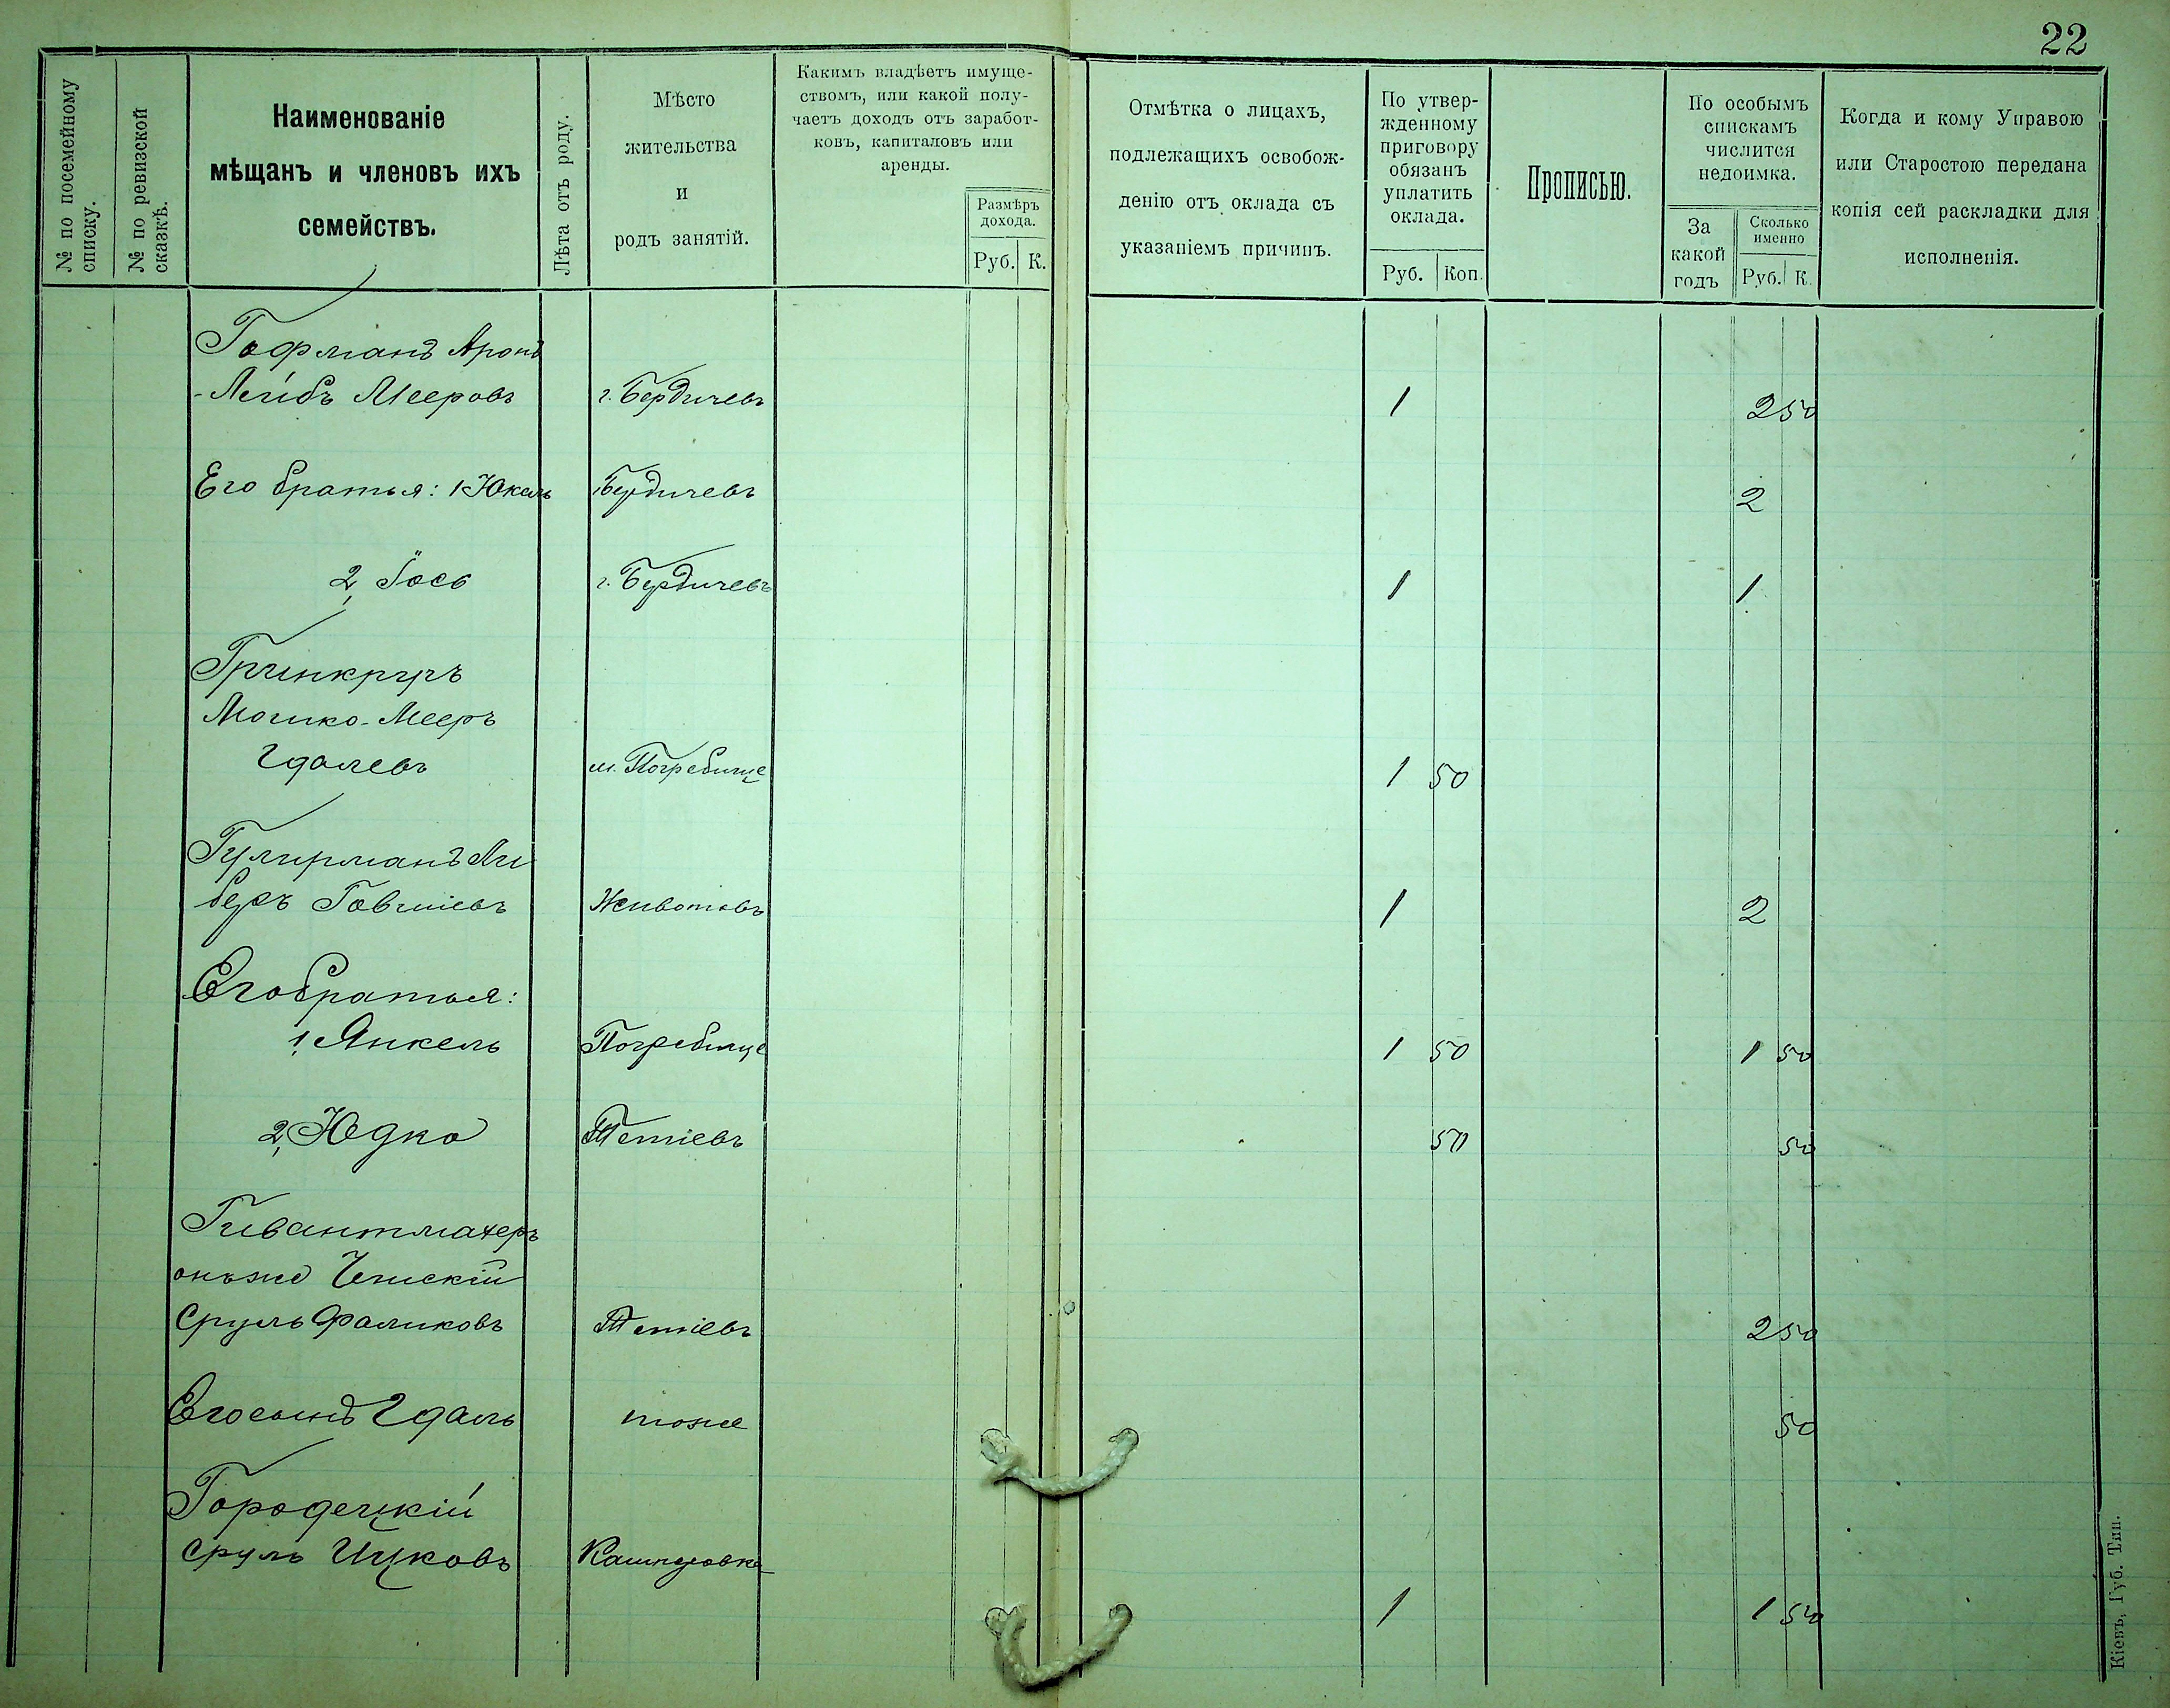 22
№ по посемейному
списку.
№ по ревизской
сказкѣ.
Наименованіе
мѣщанъ и членовъ ихъ
семействъ.
Лѣта отъ роду.
Мѣсто
жительства
и
родъ занятій.
Какимъ владѣетъ имуще-
ствомъ, или какой полу-
чаетъ доходъ отъ заработ-
ковъ, капиталовъ или
аренды.
Размѣръ
дохода.
Руб. К.
Отмѣтка о лицахъ,
подлежащихъ освобож-
денію отъ оклада съ
указаніемъ причинъ.
По утвер-
жденному
приговору
обязанъ
уплатить
оклада.
Руб. Коп.
Прописью.
По особымъ
спискамъ
числится
недоимка.
За
какой
годъ
Сколько
именно
Руб. К.
Когда и кому Управою
или Старостою передана
копія сей раскладки для
исполненія.
Гофманъ Аронъ
-Лейбъ Мееровъ г. Бердичевъ 1 2 50
Его братья: 1 Юкель Бердичевъ 2
2, Іось г. Бердичевъ 1 1
Гринкругъ
Мошко-Мееръ
Гдалевъ м. Погребище 1 50
Ли
беръ Говшіевъ Животовъ 1 2
Его братья:
1, Янкель Погребище 1 50 1 50
2, Юдко Тетіевъ 50 50
Гивантмахеръ
онъ же
Сруль Фаликовъ Тетіевъ 2 50
Его сынъ Гдаль тоже 50
Городецкій
Сруль Ицковъ Кашперовка
1 1 50
Кіевъ, Губ. Тип.